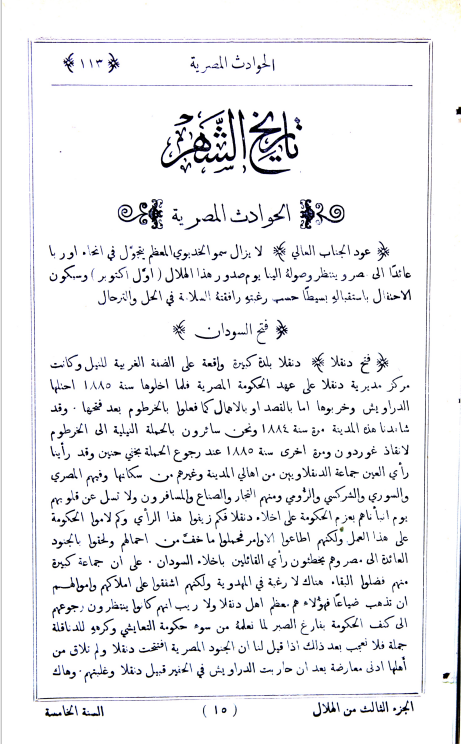 الحوادث المصرية
﴿ ١١٣ ﴾
تاريخ الشَّهر
الحوادث المصرية
﴿ عود الجناب العالي ﴾ لا يزال سمو الخديوي المعظم يتجوّل في انحاء اوربا
عائدًا الى مصر وينتظر وصولهُ الينا يوم صدور هذا الهلال ( اوّل اكتوبر ) وسيكون
الاحتفال باستقبالهِ بسيطًا حسب رغبتهِ رافقتهُ السلامة في الحل والترحال
﴿ فتح السودان ﴾
﴿ فتح دنقلا ﴾ دنقلا بلدة كبيرة واقعة على الضفة الغربية للنيل وكانت
مركز مديرية دنقلا على عهد الحكومة المصرية فلما اخلوها سنة ١٨٨٥ احتلها
الدراويش وخربوها اما بالقصد او بالاهمال كما فعلوا بالخرطوم بعد فتحها . وقد
شاهدنا هذه المدينة مرة سنة ١٨٨٤ ونحن سائرون بالحملة النيلية الى الخرطوم
لانقاذ غوردون ومرة اخرى سنة ١٨٨٥ عند رجوع الحملة بخفي حنين وقد رأينا
رأي العين جماعة الدنقلاويين من اهالي المدينة وغيرهم من سكانها وفيهم المصري
والسوري والشركسي والرومي ومنهم التجار والصناع والمسافرون ولا تسل عن قلوبهم
يوم انبأناهم بعزم الحكومة على اخلاء دنقلا فكم زيفوا هذا الرأي وكم لاموا الحكومة
على هذا العمل ولكنهم اطاعوا الاوامر فحملوا ما خفّ من احمالهم ولحقوا بالجنود
العائدة الى مصر وهم يخطئون رأي القائلين باخلاء السودان . على ان جماعة كبيرة
منهم فضلوا البقاء هناك لا رغبة في المهدوية ولكنهم اشفقوا على املاكهم واموالهم
ان تذهب ضياعًا فهؤلاء هم معظم اهل دنقلا ولا ريب انهم كانوا ينتظرون رجوعهم
الى كنف الحكومة بفارغ الصبر لما نعلمهُ من سوء حكومة التعايشي وكرههِ للدناقلة
جملة فلا نعجب بعد ذلك اذا قيل لنا ان الجنود المصرية افتتحت دنقلا ولم تلاق من
أهلها ادنى معارضة بعد ان حاربت الدراويش في الحفير قبيل دنقلا وغلبتهم . وهاك
الجزء الثالث من الهلال
( ١٥ )
السنة الخامسة